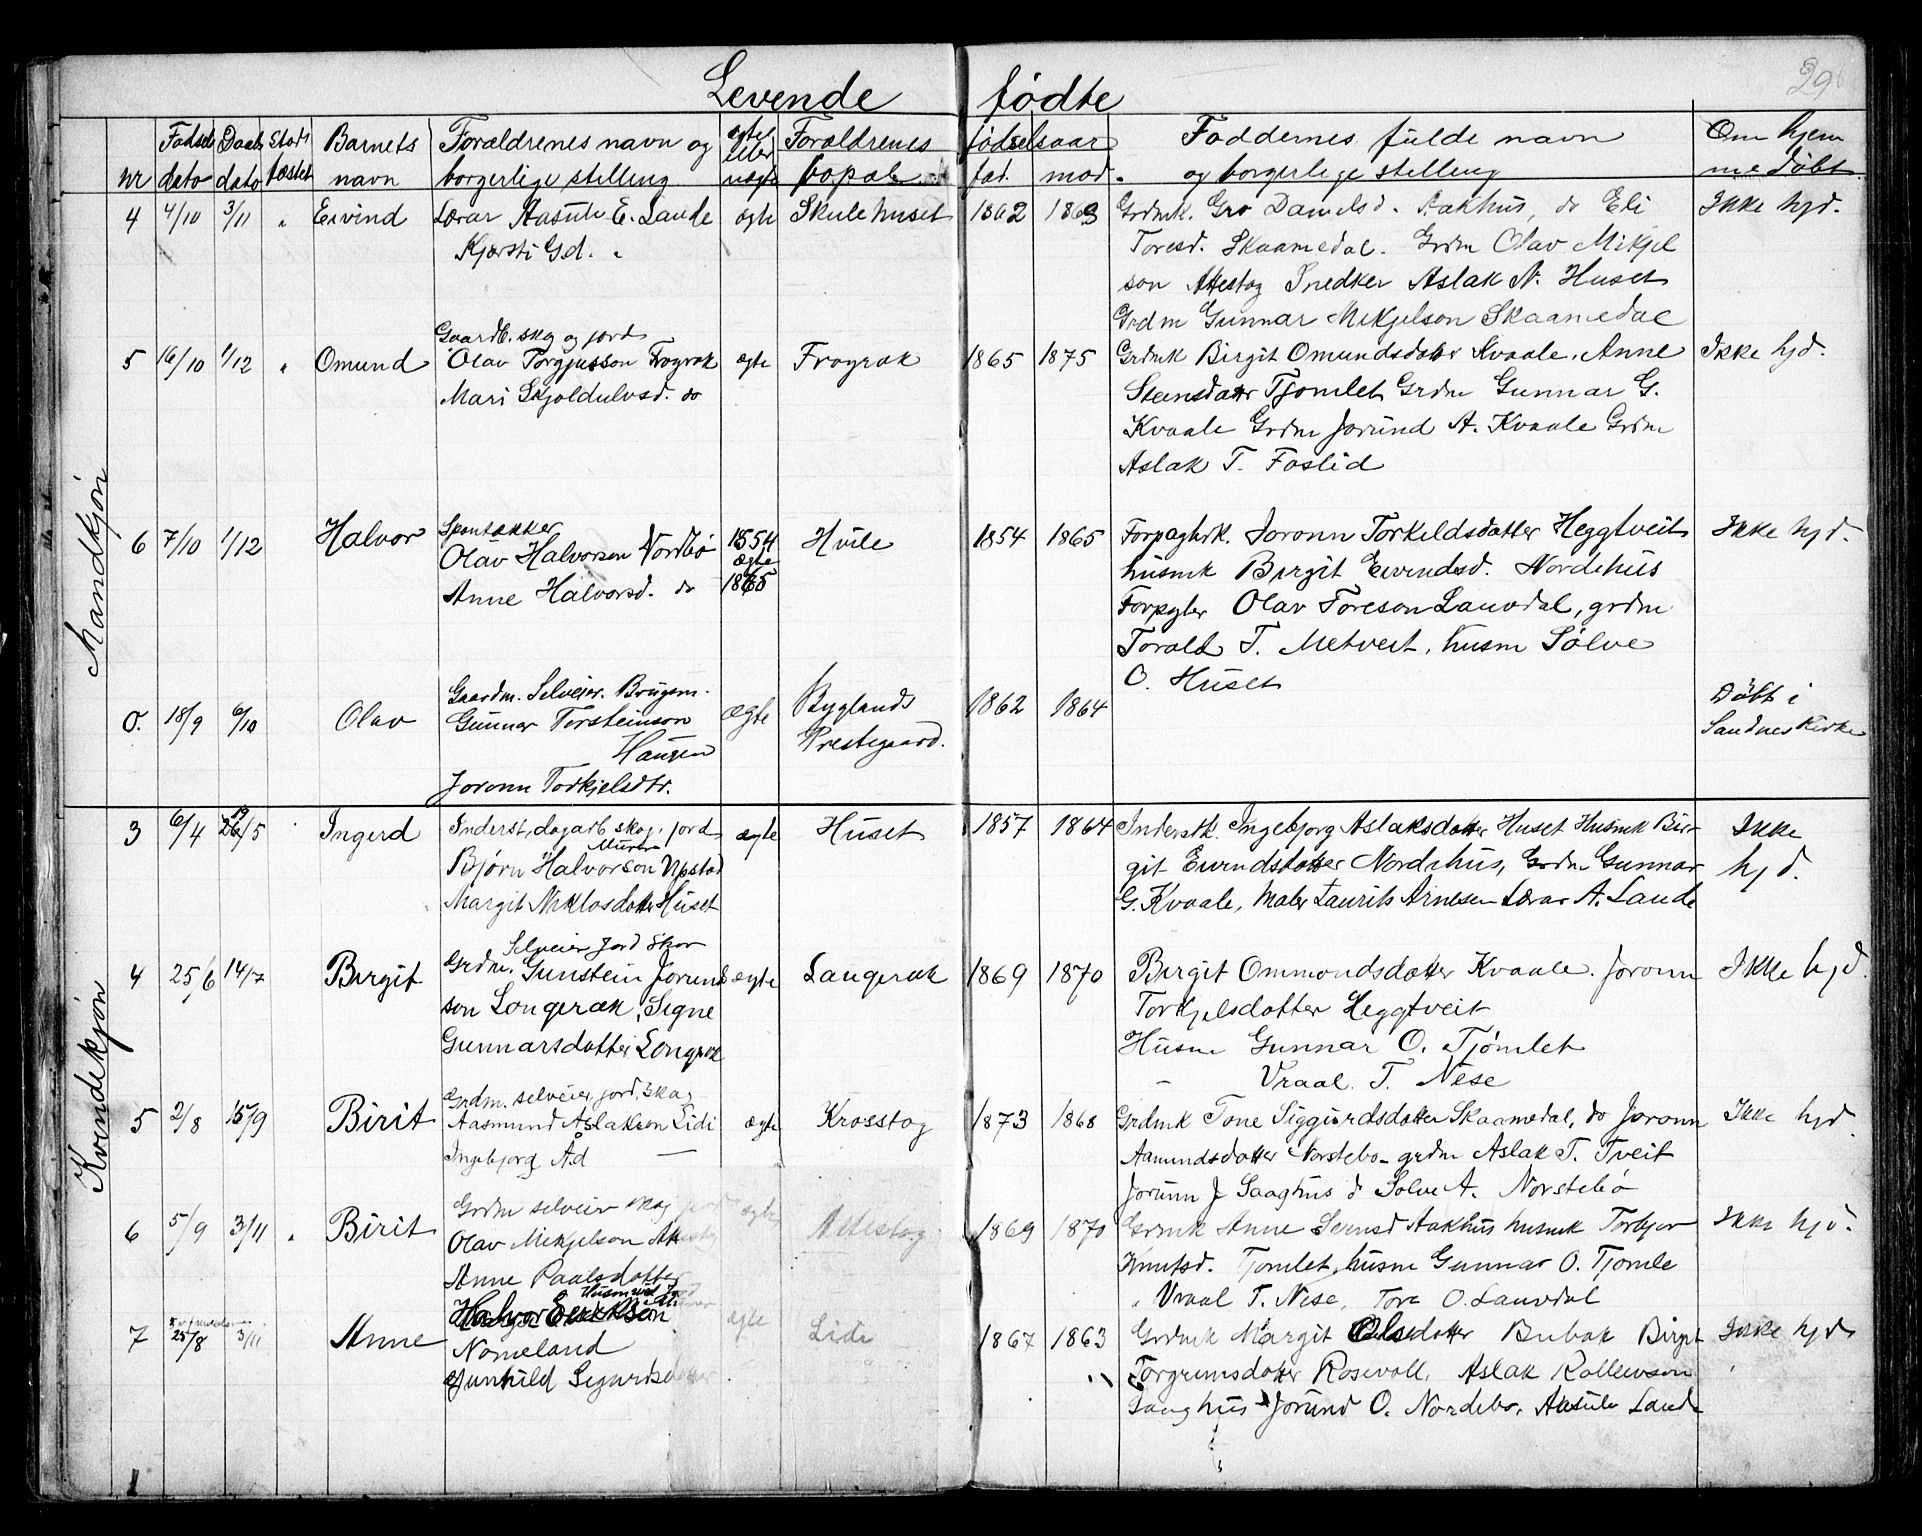 29
Levende fødte
nr
Fødsels dato
Daabs dato
Stads fæstet
Barnets navn
Forældrenes navn og borgerlige stilling
ægte eller uægte
Forældrenes bopæl
fødselsaar
fad. mod.
Faddernes fulde navn og borgerlige stilling
Om hjemmedøbt
Mandkjøn
4 4/10 3/11 " Eivind Lærar Aasulv E. Lande ægte Skulehuset 1862 1863 Grdmk. Gro Danielsd. Aakhus, do Eli Ikke hjd.
Kjersti Gd. " Toresd. Skaamedal. Grdm Olav Mikjel
son Attestog Snedker Aslak N. Huset
Grdm Gunnar Mikjelson Skaamedal
Gaardb. skog og jord
5 16/10 1/12 " Omund Olav Torgjusson Frøyrak ægte Frøyrak 1865 1875 Grdmk Birgit Omundsdatter Kvaale, Anne Ikke hjd.
Mari Skjoldulvsd. do Steensdatter Tjomlet Grdm Gunnar G.
Kvaale Grdm Jorund A. Kvaale Grdm
Aslak T. Foslid
6 7/10 1/12 Halvor Spontækker 1854 Hvile 1854 1865 Forpagtrk. Joronn Torkeldsdatter Heggtveit Ikke hjd.
Olav Halvorsen Nordbø ægte husmk Birgit Eivindsd. Nordehus
Anne Halvorsd. do 1865 Forpgter Olav Toreson Lauvdal, grdm
Torald T. Metveit, husm Sølve
O. Huset
0. 18/9 6/10 Olav Gaardm. Selveier. Brugsm. ægte Byglands 1862 1864 Døbt i
Gunnar Torsteinson Prestegaard. Sandnes Kirke
Haugen
Joronn Torkjelsdtr.
Kvindekjøn
3 6/4 19/5 Ingerd Inderst, dagarb. skog, jord ægte Huset 1857 1864 Inderstk. Ingebjorg Aslaksdatter Huset Husmk Bir- Ikke
Murer
Bjørn Halvorson Upstad git Eivindsdatter Nordehus, Grdm Gunnar hjd.
Margit Niklosdatter Huset G. Kvaale, Maler Laurits Arnesen Lærar A. Lande
Selveier Jord Skov
4 25/6 14/7 Birgit Grdm. Gunstein Jorund ægte Langerak 1869 1870 Birgit Ommondsdatter Kvaale. Joronn Ikke hjd.
son Longerak, Signe Torkjelsdatter Heggtveit
Gunnarsdatter Longrak Husm Gunnar O. Tjømlet
- Vraal T. Nese
Grdm. selveier, jord, skog
5 2/8 15/9 Birit Aasmund Aslakson Lidi ægte Krosstog 1873 1868 Grdmk Tone Siggurdsdatter Skaamedal, do Joronn Ikke hjd.
Ingebjorg Åd — Aamundsdatter Norstebo- grdm Aslak T. Tveit
Jorunn J Saaghus d Solve A. Norstebø
6 5/9 3/11 " Birit Grdm selveier skog jord ægte Attestog 1869 1870 Grdmk Anne Steensd Aakhus husmk Torbjor Ikke hjd.
Olav Mikjelson Knutsd. Tjomlet, husm Gunnar O. Tjomle
Anne Paalsdatter " Vraal T. Nese, Tore O. Lauvdal
Husm med Jord
7 25/8 3/11 Anne Halvor Eirikson ægte Lidi 1867 1863 Grdmk Margit Olsdatter Bubak Birgit Ikke hjd
Nomeland Torgrimsdatter Rosevoll, Aslak Rollevson
Gunhild Sigurdsdatter Saaghus Jorund O. Nordebo, Aasulv Lande